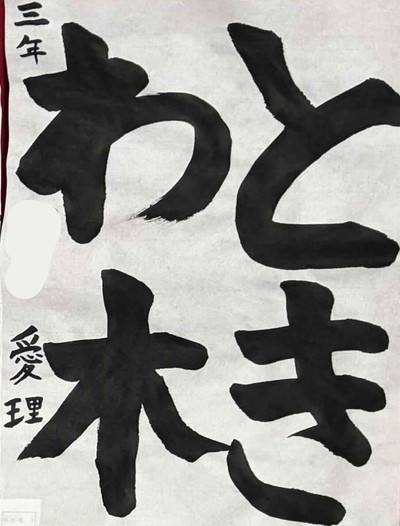 とき
わ木
三年 愛理